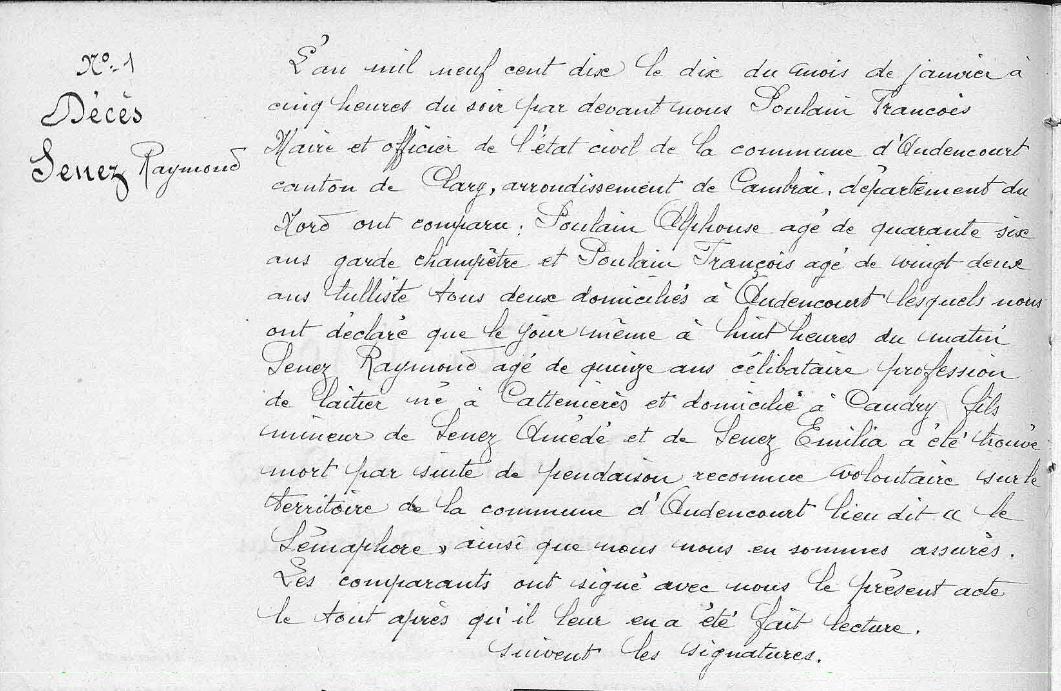 No. 1
Décès
Senez Raymond
L'an mil neuf cent dix le dix du mois de janvier à
cinq heures du soir par devant nous Poulain François
Maire et officier de l'état civil de la commune d'Audencourt
canton de Clary, arrondissement de Cambrai, département du
Nord ont comparu : Poulain Alphonse agé de quarante six
ans garde champêtre et Poulain François agé de vingt deux
ans tulliste tous deux domiciliés à Audencourt lesquels nous
ont déclaré que le jour même à huit heures du matin
Senez Raymond agé de quinze ans célibataire profession
de laitier né à Cattenières et domicilié à Caudry fils
mineur de Senez Amédé et de Senez Emilia a été trouvé
mort par suite de pendaison reconnue volontaire sur le
territoire de la commune d'Audencourt lieu dit « le
Sémaphore » ainsi que nous nous en sommes assurés.
Les comparants ont signé avec nous le présent acte
le tout après qu'il leur en a été fait lecture.
suivent les signatures.